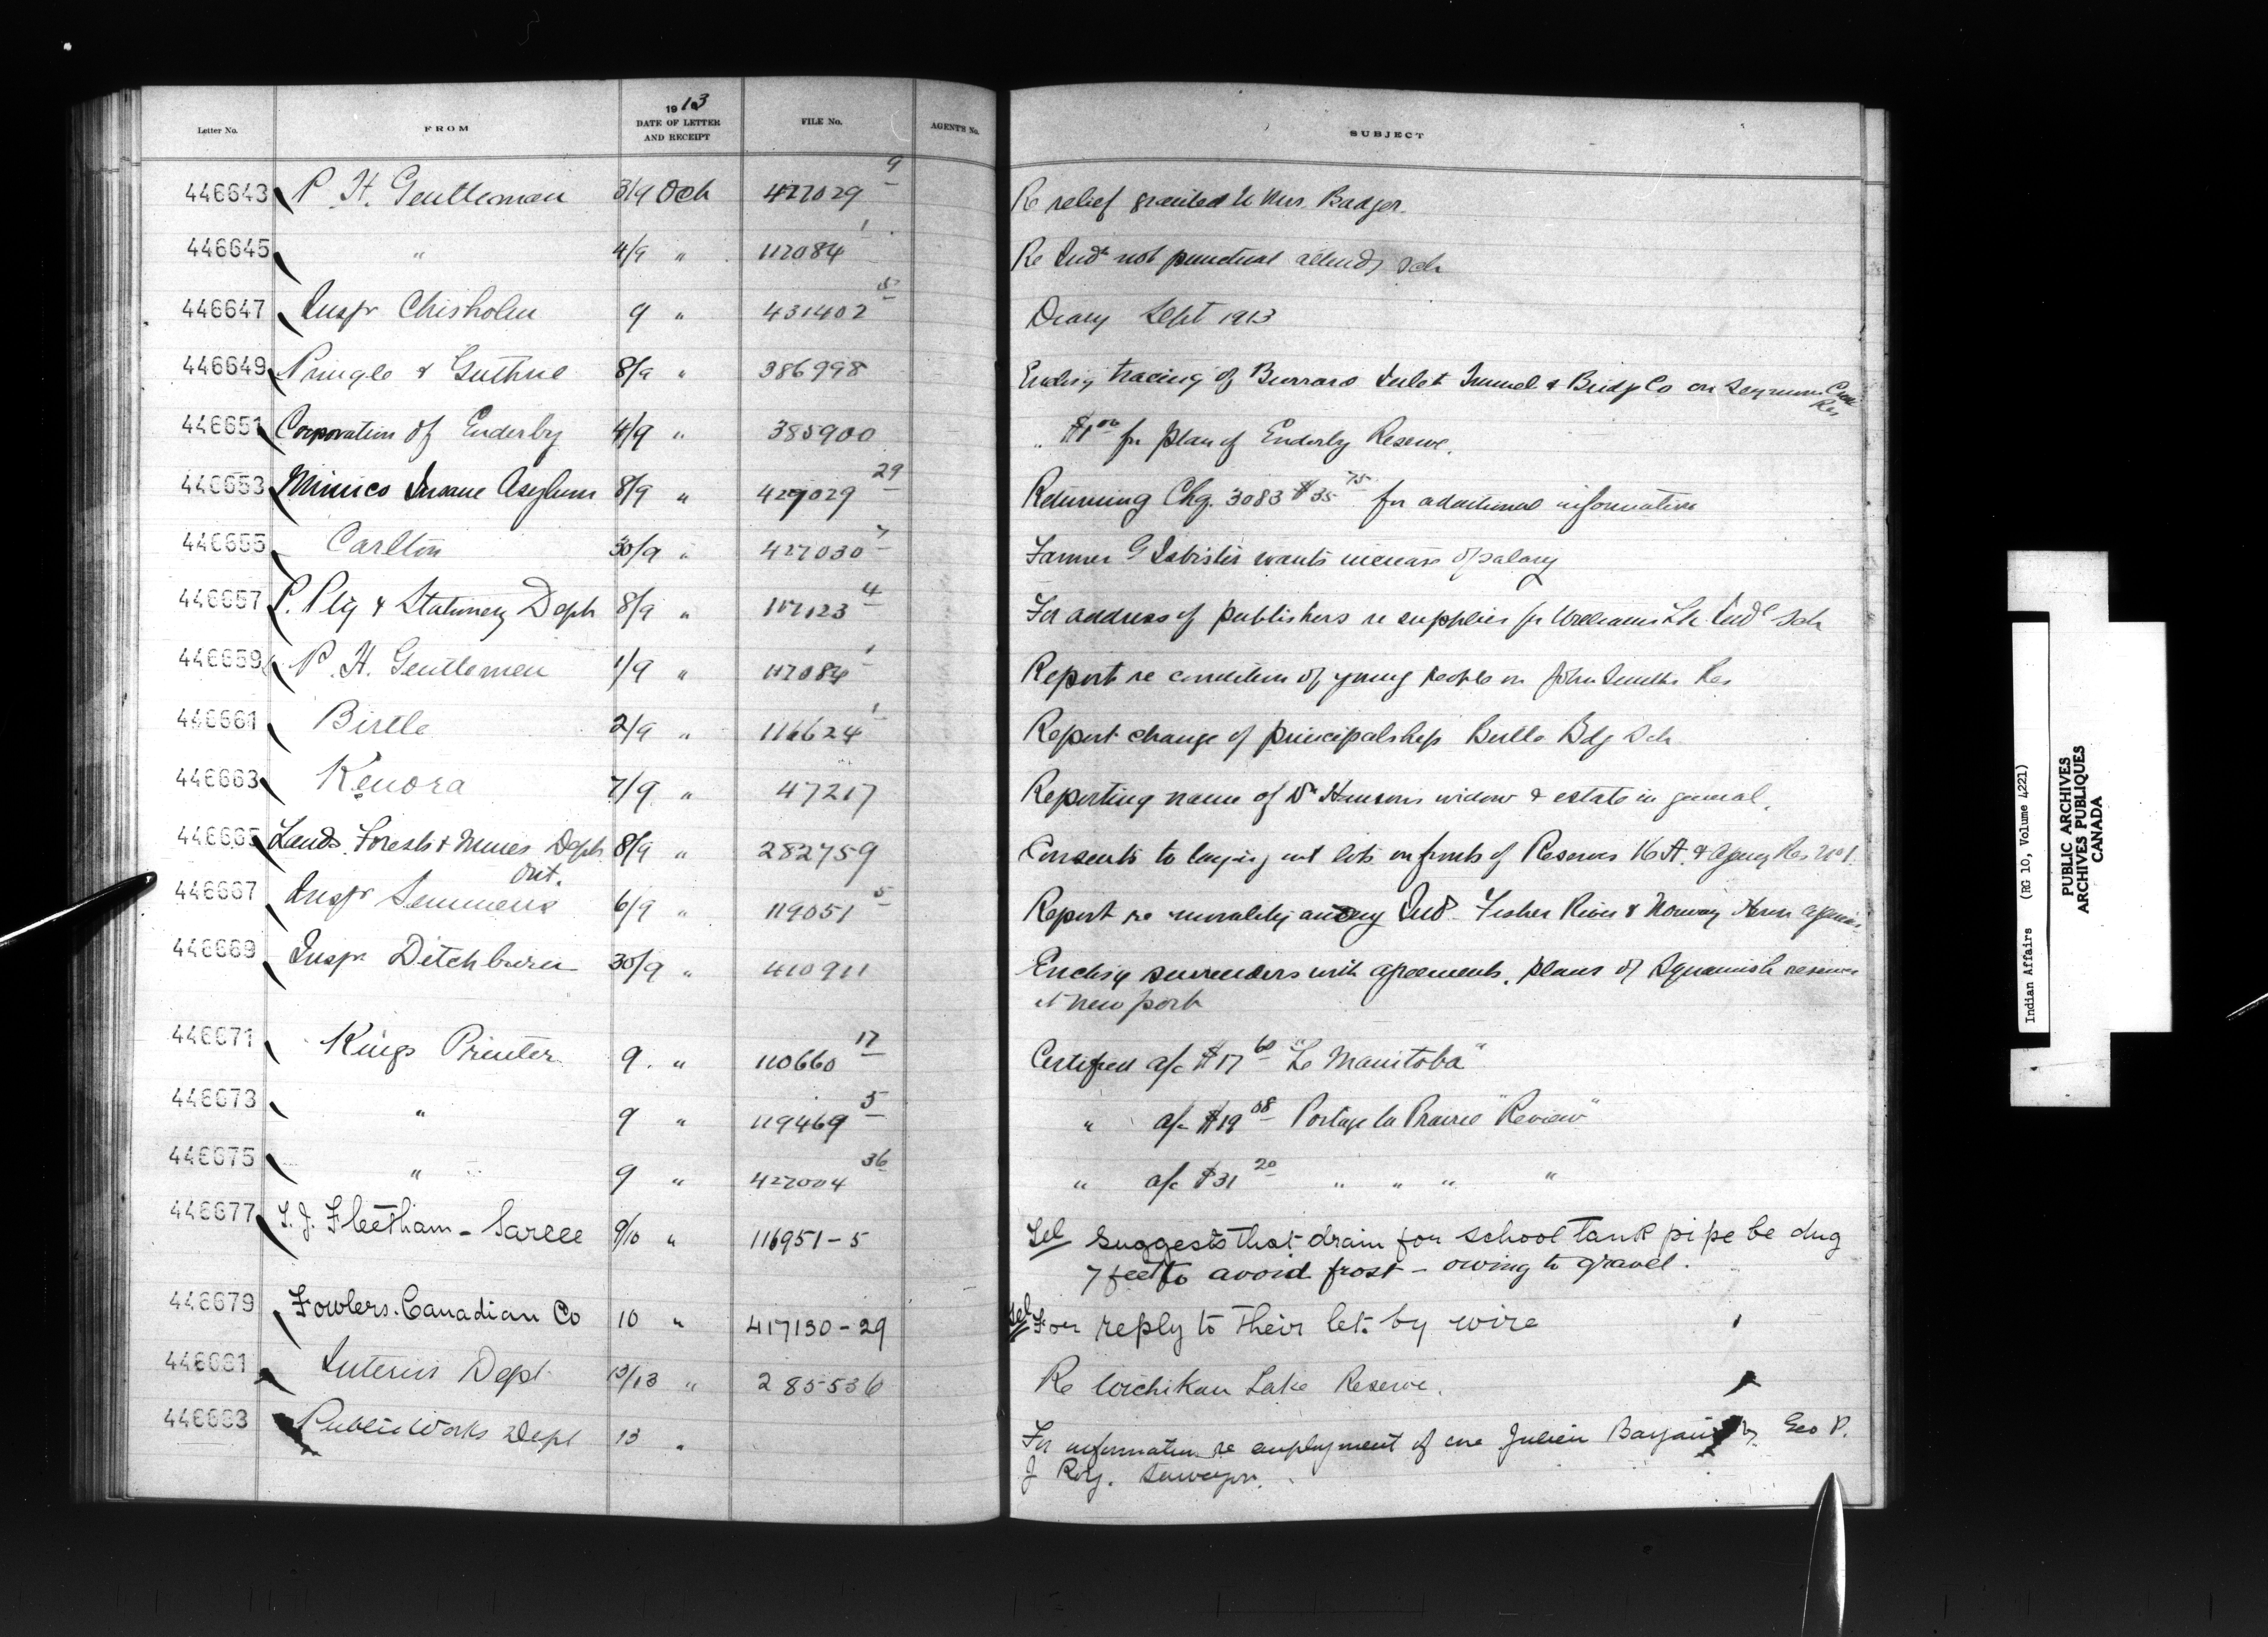 Letter No. FROM 1913 DATE OF LETTER AND RECEIPT FILE No. AGENT'S No. SUBJECT
446643 P. H. Gentleman 3/9 Oct 427029 9 Re relief granted to Mrs. Badger.
446645 " 4/9 " 112084 1 Re Inds not punctual attendg Sch
446647 Inspr Chisholm 9 " 431402 5 Diary Sept 1913
446649 Pringle & Guthrie 8/9 " 386998 Enclosg tracing of Burrard Inlet Tunnel & Bridge Co on Seymour Creek Res
446651 Corporation of Enderby 4/9 " 385900 " $1 00 for plan of Enderby Reserve.
446653 Mimico Insane Asylum 8/9 " 429029 29 Returning Chq. 3083 $35 75 for additional information
446655 Carlton 30/9 " 427030 7 Farmer G wants increase of salary
446657 P. Ptg & Stationery Dept 8/9 " 112123 4 For address of publishers re supplies for Williams Lk. Indl Sch
446659 P. H. Gentleman 1/9 " 112084 1 Report re condition of young people on John Smiths Res
446661 Birtle 2/9 " 116624 1 Report change of principalship Birtle Bdg Sch
446663 Kenora 7/9 " 47217 Reporting name of Dr Hansons widow & estate in general.
446665 Lands Forests & Mines Dept Ont. 8/9 " 282759 Consents to laying out lots on fronts of Reserves 16 A. & Agency Res No 1.
446667 Inspr Semmens 6/9 " 119051 5 Report re morality among Inds Fisher River & Norway House Agencies
446669 Inspr Ditchburn 30/9 " 410911 Enclosg surrenders with agreements, plans of Squamish reserves
at Newport
446671 Kings Printer 9. " 110660 17 Certified a/c $17 60 "Le Manitoba"
446673 " 9 " 119469 5 " a/c $19 08 Portage la Prairie "Review"
446675 " 9 " 427004 36 " a/c $31 20 " " " "
446677 T. J. Fleetham - Sarcee 9/10 " 116951-5 Tel Suggests that drain for school tank pipe be dug
7 feet to avoid frost - owing to gravel.
446679 Fowlers Canadian Co 10 " 417130-29 Tel For reply to their let. by wire
446681 Interior Dept 13/13 " 285536 Re Witchikan Lake Reserve.
446683 Public Works Dept 13 " For information re employment of one Julien by Geo P.
J Roy. Surveyor.
Indian Affairs (RG 10, Volume 4221)
PUBLIC ARCHIVES
ARCHIVES PUBLIQUES
CANADA